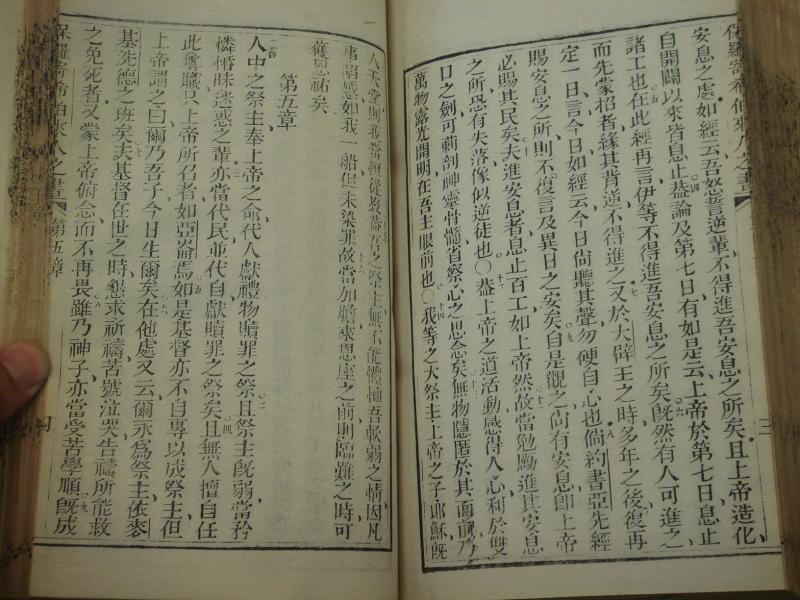 保羅寄希伯來人之書
三
安息之處如經云吾怒誓逆輩不得進吾安息之所矣且上帝造化
自開闢以來皆息止蓋論及第七日有如是云上帝於第七日息止
諸工也在此經再言伊等不得進吾安息之所矣旣然有人可進之
而先蒙招者緣其背逆不得進之又於大辟王之時多年之後復再
定一日言今日如經云今日尚聽其聲勿硬自心也倘約書亞先經
賜安息之所則不復言及異日之安矣自是觀之尚有安息卽上帝
必賜其民矣夫進安息者息止百工如上帝然故當勉勵進其安息
之所恐有失落像似逆徒也〇蓋上帝之道活動感得人心利於雙
口之劍可剺剖神靈骨髓省察心之思念矣無物隱匿於其面前乃
萬物露光開明在吾主眼前也〇我等之大祭主上帝之子耶穌旣
入天堂則我當恆從敎蓋吾之祭主無不能體恤吾軟弱之情因凡
事陷惑如我一般但未染罪故當加膽來恩座之前則臨難之時可
獲恩祐矣
第五章
人中之祭主奉上帝之命代人獻禮物贖罪之祭且祭主旣弱當矜
憐惛昧迷惑之輩亦當代民並代自獻贖罪之祭矣且無人擅自任
此尊職只上帝所召者如亞崙焉如是基督亦不自專以成祭主但
上帝謂之曰爾乃吾子今日生爾矣在他處又云爾永爲祭主依麥
基洗德之班矣夫基督在世之時懇求祈禱苦號泣哭告禱所能救
之免死者又蒙上帝俯念而不再畏雖乃神子亦當受苦學順旣成
保羅寄希伯來人之書
第五章
四